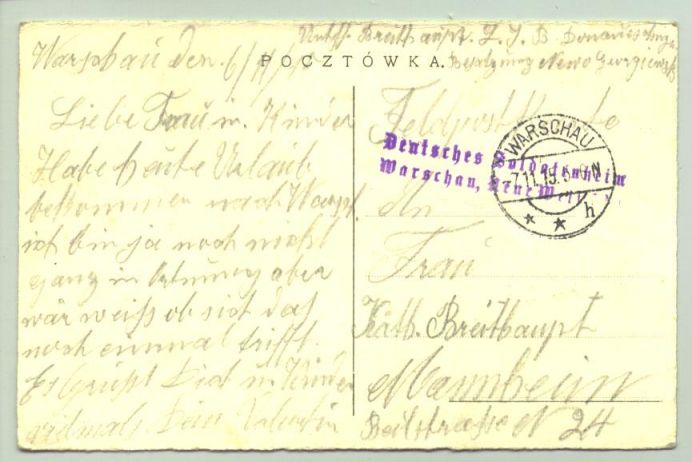 Untff. Breithaupt. L. I. B. Donaueschingen
Warschau den 6/11
POCZTÓWKA.
Besatzung Nowo Georgiewsk
Liebe Frau u. Kinder
Habe heute Urlaub
bekommen nach Warsch.
ich bin ja noch nicht
ganz in Ortnung aber
wär weiß ob sich das
noch einmal trifft.
Es grüßt Dich u. Kinder
vielmals Dein Valentin
Feldpostkarte
Deutsches Soldatenheim
Warschau, Neue Welt
WARSCHAU
7.11.15. 8-9 N
* * h
An
Frau
Kath. Breithaupt
Mannheim
Beilstrasse N 24